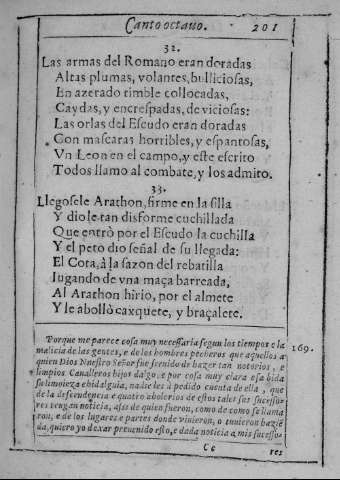 Canto octauo. 201
32.
Las armas del Romano eran doradas
Altas plumas, volantes, bulliciosas,
En azerado timble collocadas,
Caydas, y encrespadas, de viciosas:
Las orlas del Escudo eran doradas
Con mascaras horribles, y espantosas,
Vn Leon en el campo, y este escrito
Todos llamo al combate, y los admito.
33.
Llegosele Arathon, firme en la silla
Y diole tan disforme cuchillada
Que entrò por el Escudo la cuchilla
Y el peto dio señal de su llegada:
El Cota, à la sazon del rebatilla
Iugando de vna maça barreada,
Al Arathon hirio, por el almete
Y le abollò caxquete, y braçalete.
Porque me parece cosa muy necessaria segun los tiempos e la
malicia de las gentes, e de los hombres pecheros que aquellos a 169.
quien Dios Nuestro Señor fue seruido de hazer tan notorios, e
limpios Caualleros hijos dalgo, e por cosa muy clara esa bida
sa limpieza e hidalguia, nadie les à pedido cuenta de ella, que
de la descendencia e quatro abolorios de estos tales sus sucesso-
res tengan noticia, assi de quien fueron, como de como se llama
ron, e de los lugares e partes donde viuieron, o tuuieron hazie
da, quiero yo dexar preuenido esto, e dada noticia a mis successo-
Cc res